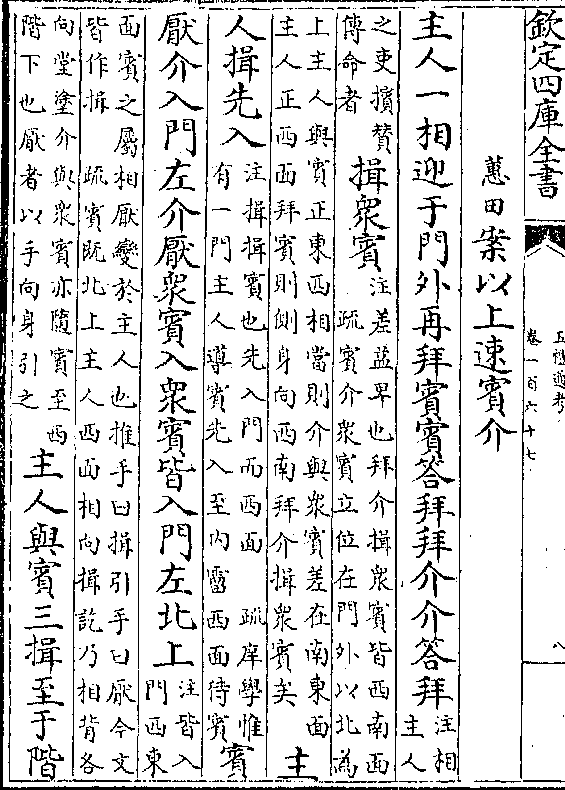 欽定四庫全書
五禮通考
卷一百六十七
八
蕙田案以上速賓介
主人一相迎于門外再拜賓賓答拜拜介介答拜
注相
主人
之吏擯贊
傳命者
揖衆賓
注差益卑也拜介揖衆賓皆西南面
疏賓介衆賓立位在門外以北為
上主人與賓正東西相當則介與衆賓差在南東面
主人正西面拜賓則側身向西南拜介揖衆賓矣
主
人揖先入
注揖揖賓也先入門而西面 疏庠學惟
有一門主人導賓先入至内霤西面待賓
賓
厭介入門左介厭衆賓入衆賓皆入門左北上
注皆入
門西東
面賓之屬相厭變於主人也推手曰揖引手曰厭今文
皆作揖 疏賓既北上主人西面相向揖訖乃相背各
向堂塗介與衆賓亦隨賓至西
階下也厭者以手向身引之
主人與賓三揖至于階